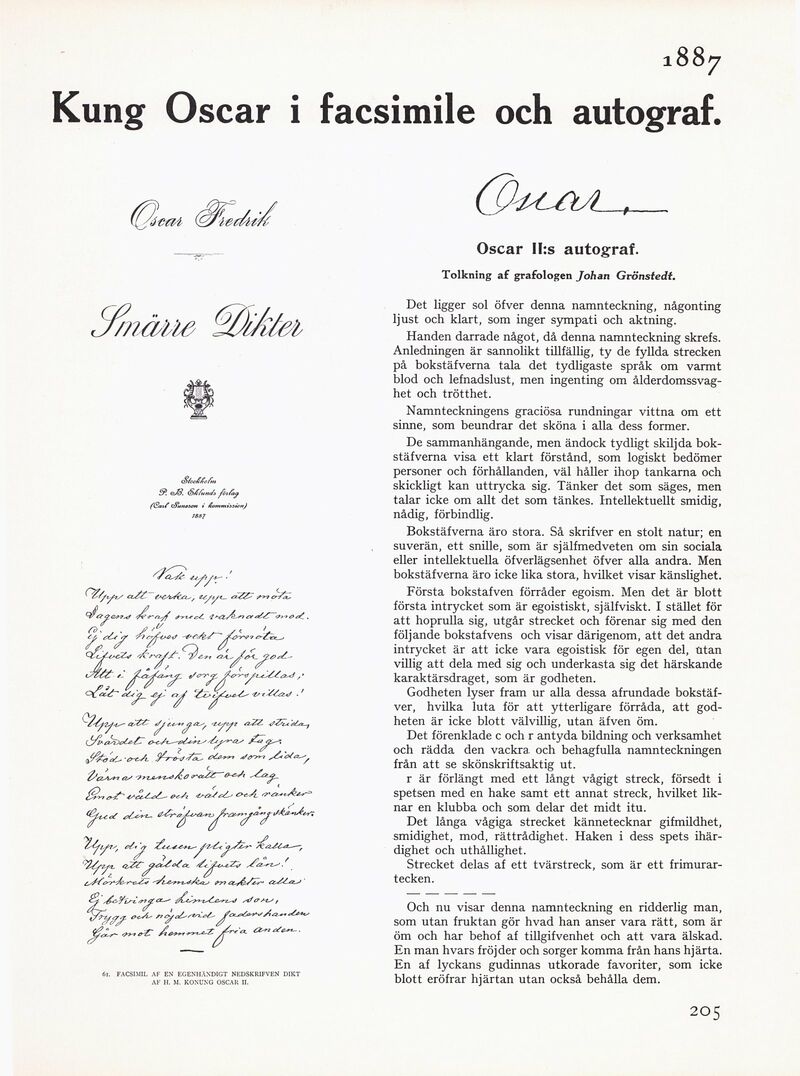 1887
Kung Oscar i facsimile och autograf.
Oscar Fredrik
Smärre Dikter
Stockholm
P. B. Eklunds förlag
(Carl Suneson i kommission)
1887
Vak upp!
Upp att verka, upp att mota
Dagens kraf med vaknadt mod.
Ej dig höfves vekt förrota
Lifvets kraft. Den är för god
Att i fåfäng sorg förspillas;
Låt dig ej af tvifvel villas!
Upp att sjunga, upp att strida,
Svärdet och din lyra tag.
Stöd och trösta dem som lida,
Värna mensko rätt och lag
Emot våld och
Gud din sträfvan framgång skänker.
Upp, dig tusen pligter kalla,
Upp att gälda lifvets lån!
Mörkrets hemska makter alla
Ej betvinga himlens son,
Trygg och nöjd vid fadershanden
Går mot hemmet fria anden.
61. FACSIMIL AF EN EGENHÄNDIGT NEDSKRIFVEN DIKT
AF H. M. KONUNG OSCAR II.
Oscar
Oscar II:s autograf.
Tolkning af grafologen Johan Grönstedt.
Det ligger sol öfver denna namnteckning, någonting
ljust och klart, som inger sympati och aktning.
Handen darrade något, då denna namnteckning skrefs.
Anledningen är sannolikt tillfällig, ty de fyllda strecken
på bokstäfverna tala det tydligaste språk om varmt
blod och lefnadslust, men ingenting om ålderdomssvag-
het och trötthet.
Namnteckningens graciösa rundningar vittna om ett
sinne, som beundrar det sköna i alla dess former.
De sammanhängande, men ändock tydligt skiljda bok-
stäfverna visa ett klart förstånd, som logiskt bedömer
personer och förhållanden, väl håller ihop tankarna och
skickligt kan uttrycka sig. Tänker det som säges, men
talar icke om allt det som tänkes. Intellektuellt smidig,
nådig, förbindlig.
Bokstäfverna äro stora. Så skrifver en stolt natur; en
suverän, ett snille, som är själfmedveten om sin sociala
eller intellektuella öfverlägsenhet öfver alla andra. Men
bokstäfverna äro icke lika stora, hvilket visar känslighet.
Första bokstafven förråder egoism. Men det är blott
första intrycket som är egoistiskt, själfviskt. I stället för
att hoprulla sig, utgår strecket och förenar sig med den
följande bokstafvens och visar därigenom, att det andra
intrycket är att icke vara egoistisk för egen del, utan
villig att dela med sig och underkasta sig det härskande
karaktärsdraget, som är godheten.
Godheten lyser fram ur alla dessa afrundade bokstäf-
ver, hvilka luta för att ytterligare förråda, att god-
heten är icke blott välvillig, utan äfven öm.
Det förenklade c och r antyda bildning och verksamhet
och rädda den vackra och behagfulla namnteckningen
från att se skönskriftsaktig ut.
r är förlängt med ett långt vågigt streck, försedt i
spetsen med en hake samt ett annat streck, hvilket lik-
nar en klubba och som delar det midt itu.
Det långa vågiga strecket kännetecknar gifmildhet,
smidighet, mod, rättrådighet. Haken i dess spets ihär-
dighet och uthållighet.
Strecket delas af ett tvärstreck, som är ett frimurar-
tecken.
Och nu visar denna namnteckning en ridderlig man,
som utan fruktan gör hvad han anser vara rätt, som är
öm och har behof af tillgifvenhet och att vara älskad.
En man hvars fröjder och sorger komma från hans hjärta.
En af lyckans gudinnas utkorade favoriter, som icke
blott eröfrar hjärtan utan också behålla dem.
205